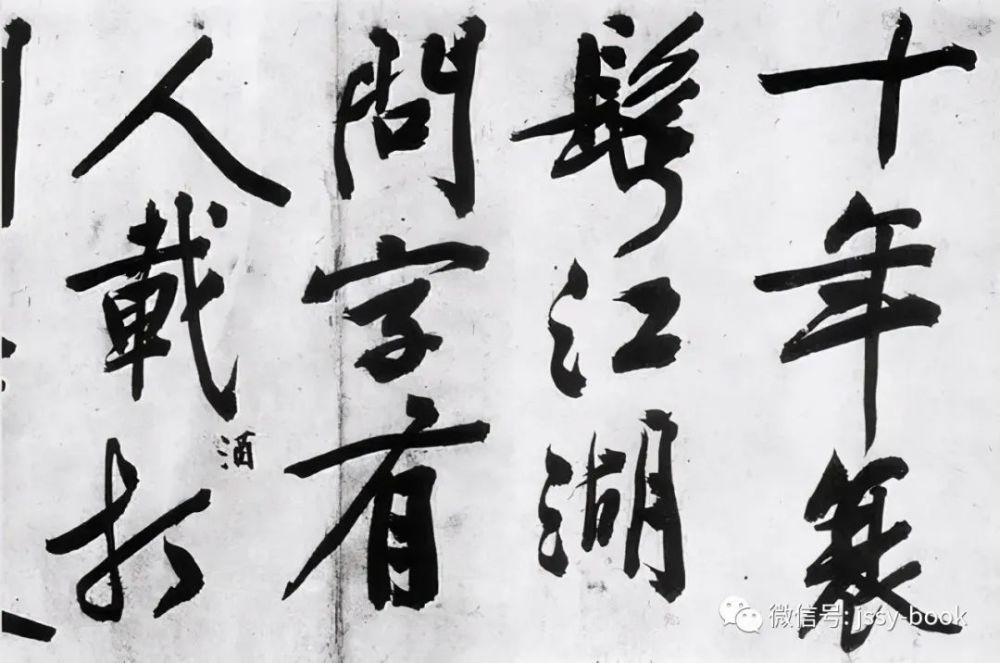 十年衰
鬢江湖
問字有
人載
酒
微信号: jssy-book